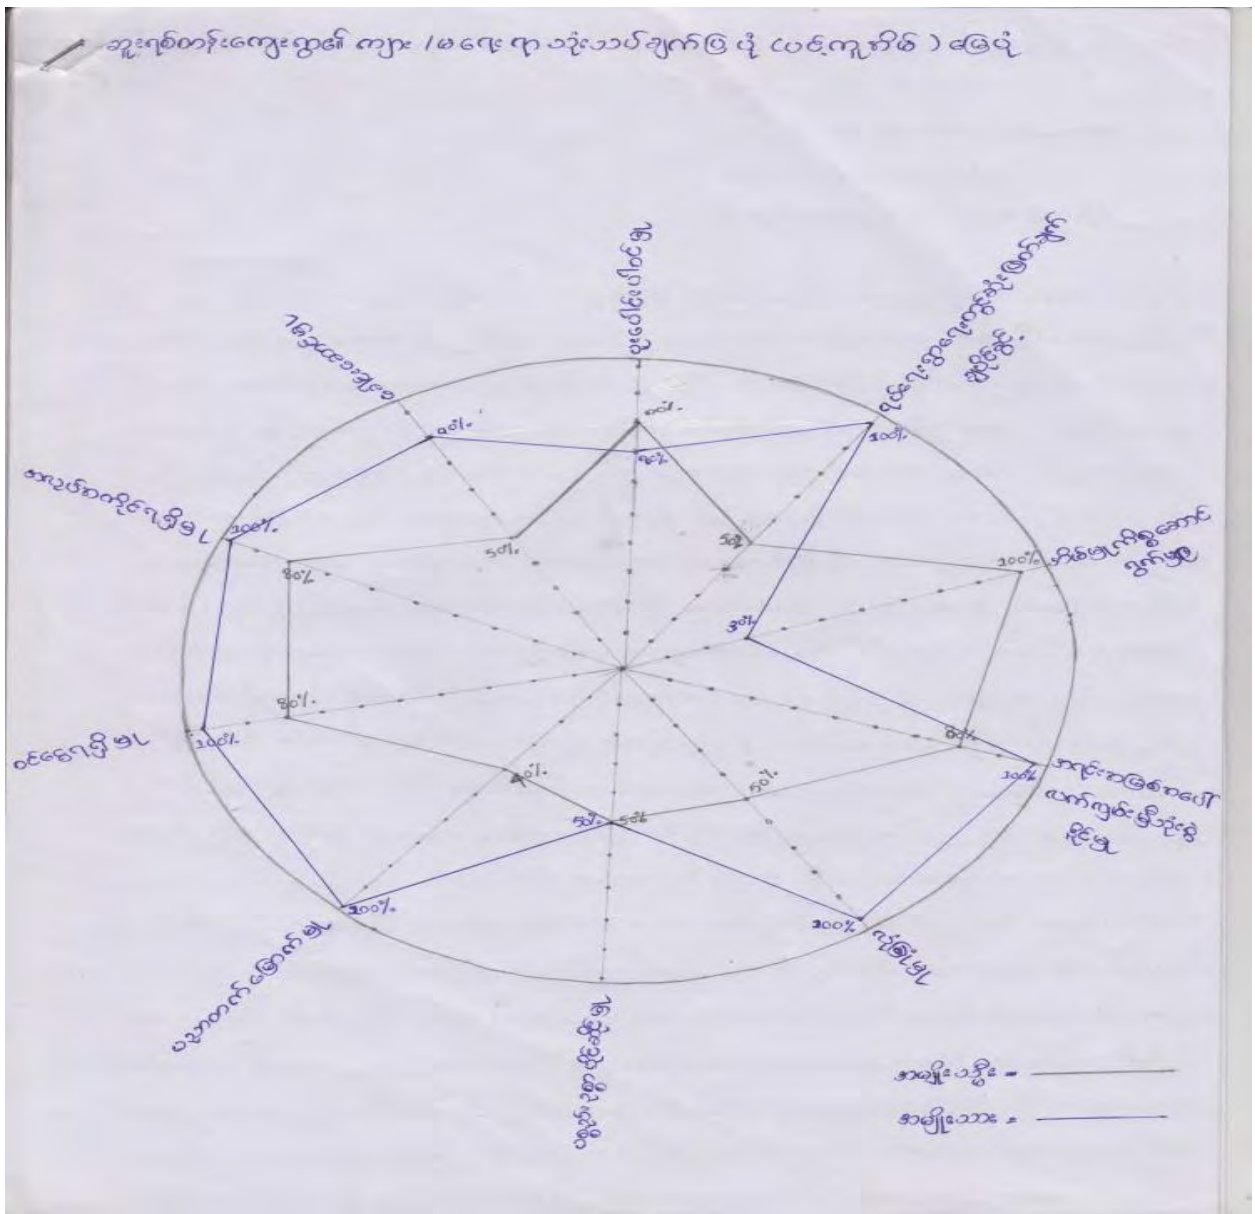 ဘူးရစ်တန်းကျေးရွာ၏ ကျား /မ ရေး ရာ သုံးသပ်ချက်ပြ ပုံ (ပင့်ကူအိမ်) မြေပုံ
ပူးပေါင်းပါဝင်မှု
ရပ်ရေးရွာရေးတွင်ဆုံးဖြတ်ချက်
ချပိုင်ခွင့်
အိမ်မှုကိစ္စဆောင်
ရွက်မှု
အရင်းအမြစ်အပေါ်
လက်လှမ်းမှီသုံးစွဲ
နိုင်မှု
လုံခြုံမှု
ပညာတတ်မြောက်မှု
ဝင်ငွေရရှိမှု
အလုပ်အကိုင်ရရှိမှု
90%
90%
50%
100%
50%
100%
30%
80%
100%
50%
100%
50%
50%
40%
100%
80%
100%
80%
100%
အမျိုးသမီး =
အမျိုးသား =